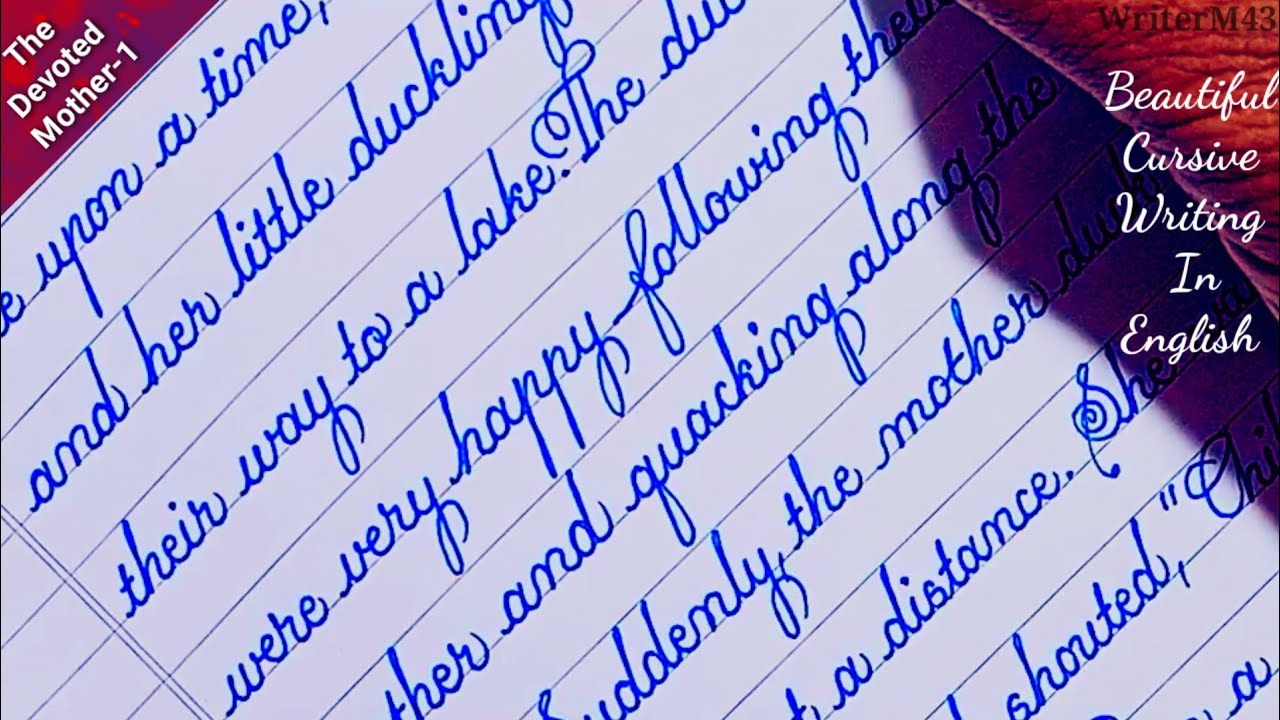 The
Devoted
Mother-1
WriterM43
Beautiful
Cursive
Writing
In
English
upon a time,
and her little duckling
their way to a lake. The duc
were very happy following thei
ther and quacking along the
uddenly, the mother duck
t a distance. She
shouted, "Chil
a